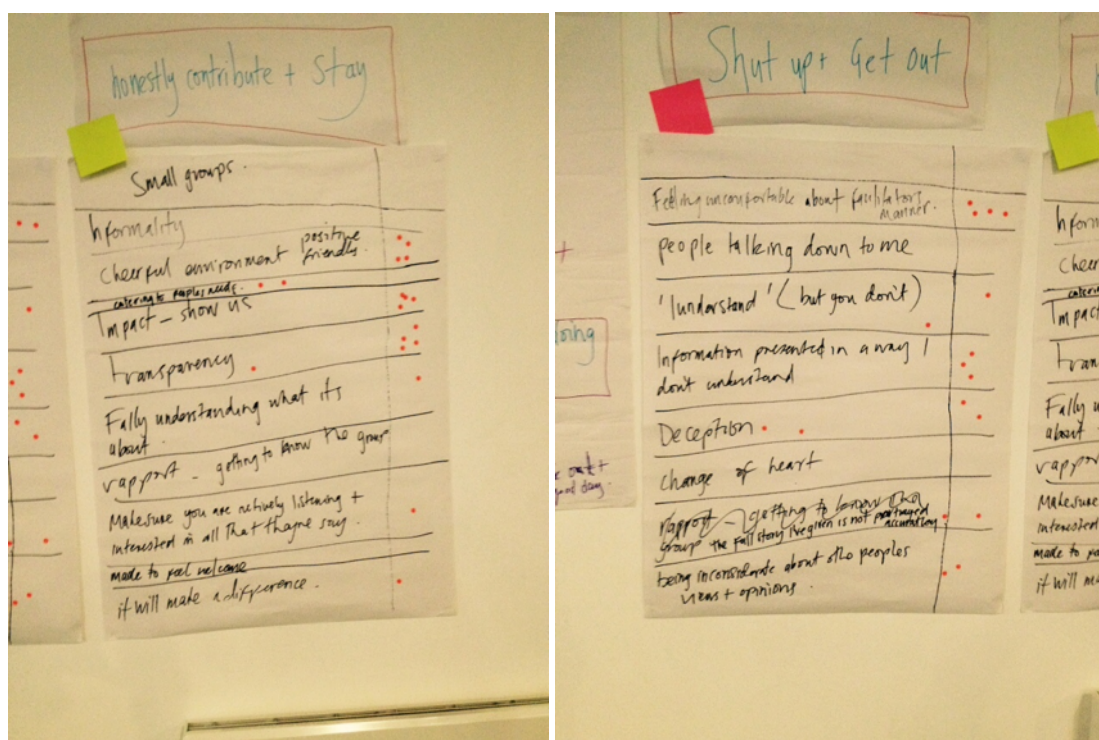 honestly contribute + Stay
Small groups.
Informality
Cheerful environment positive
friendly.
catering to peoples needs.
Impact - show us
transparency
Fully understanding what its
about.
rapport - getting to know the group
Make sure you are actively listening +
interested in all that
say.
made to feel welcome
it will make a difference.
Shut up + Get out
Feeling uncomfortable about facilitators
manner.
people talking down to me
'I understand' (but you don't)
Information presented in a way I
don't understand
Deception
change of heart
rapport - getting to know the
group
the full story I've given is not portrayed
accurately
being inconsiderate about othe peoples
views + opinions.
oing
out +
good day.
Inform
Cheer
catering
Impact
tran
Fully u
about
rappor
Makesure
interested
made to fe
it will ma